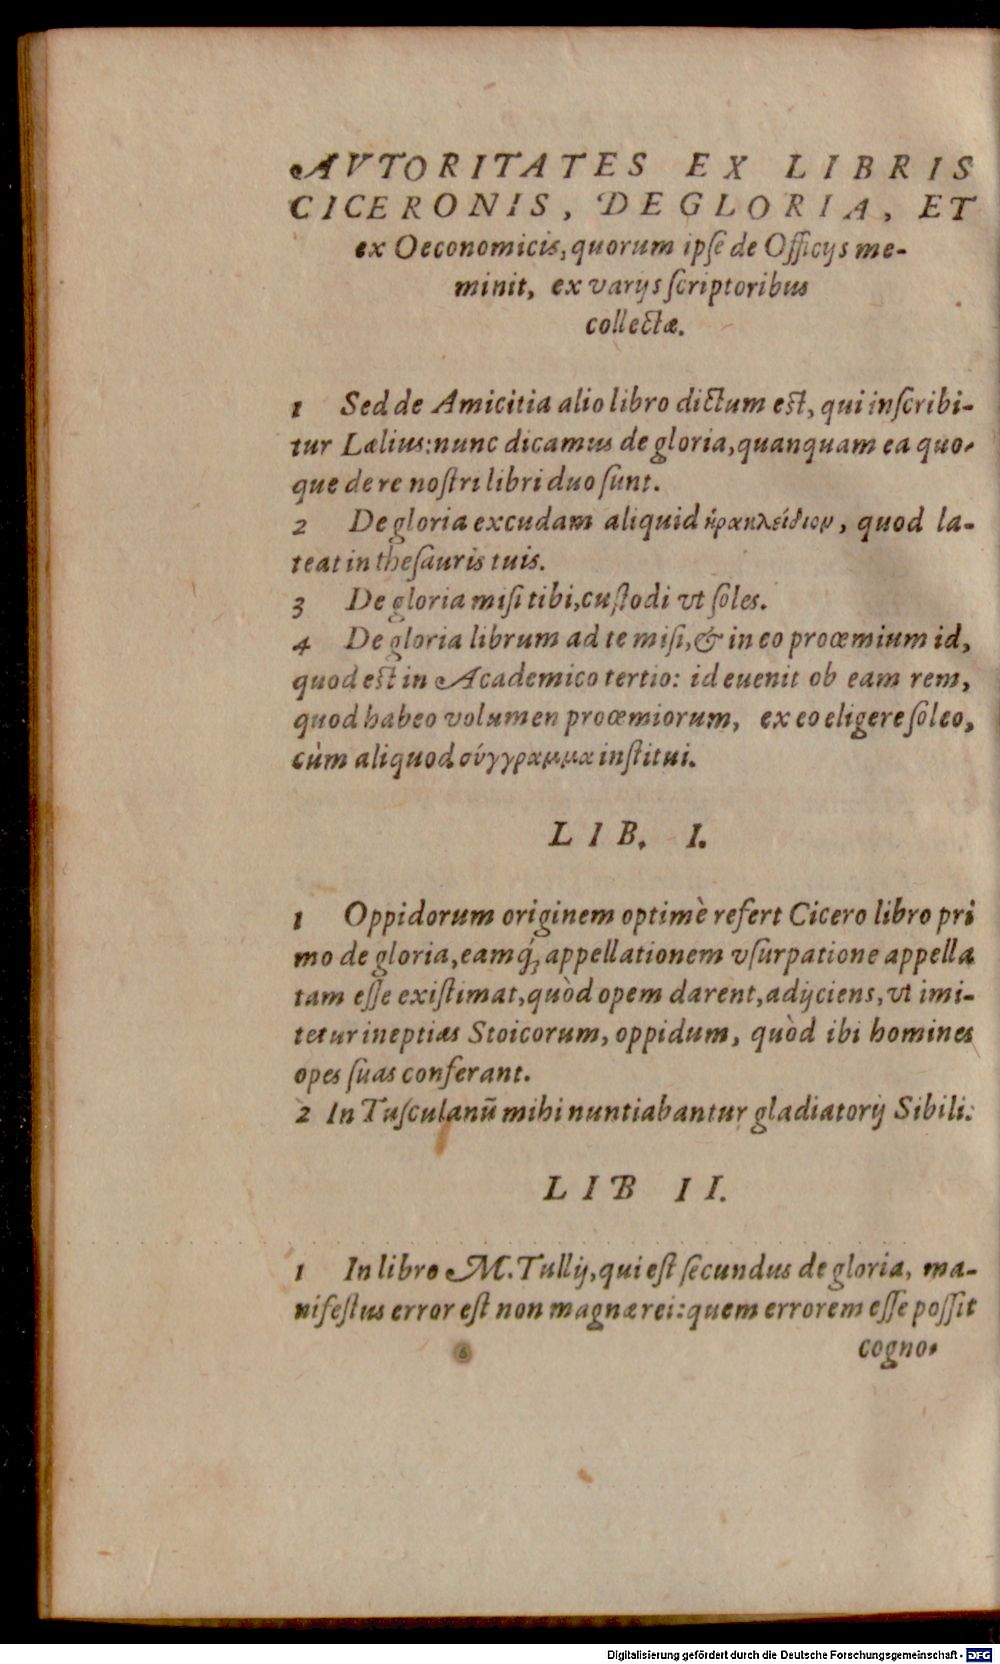 AVTORITATES EX LIBRIS
CICERONIS, DE GLORIA, ET
ex Oeconomicis, quorum ipſe de Officijs me-
minit, ex varijs ſcriptoribus
collectæ.
1 Sed de Amicitia alio libro dictum est, qui inſcribi-
tur Lælius: nunc dicamus de gloria, quanquam ea quo-
que de re noſtri libri duo ſunt.
2 De gloria excudam aliquid ἡρακλείδιον, quod la-
teat in theſauris tuis.
3 De gloria miſi tibi, cuſtodi vt ſoles.
4 De gloria librum ad te miſi, & in eo proœmium id,
quod est in Academico tertio: id euenit ob eam rem,
quod habeo volumen proœmiorum, ex eo eligere ſoleo,
cùm aliquod σύγγραμμα inſtitui.
LIB. I.
1 Oppidorum originem optimè refert Cicero libro pri
mo de gloria, eamq́, appellationem vſurpatione appella
tam eſſe exiſtimat, quòd opem darent, adijciens, vt imi-
tetur ineptias Stoicorum, oppidum, quòd ibi homines
opes ſuas conferant.
2 In Tuſculanū mihi nuntiabantur gladiatorij Sibili.
LIB II.
1 In libro M. Tullij, qui eſt ſecundus de gloria, ma-
nifeſtus error eſt non magnæ rei: quem errorem eſſe poſſit
cogno-
Digitalisierung gefördert durch die Deutsche Forschungsgemeinschaft - DFG